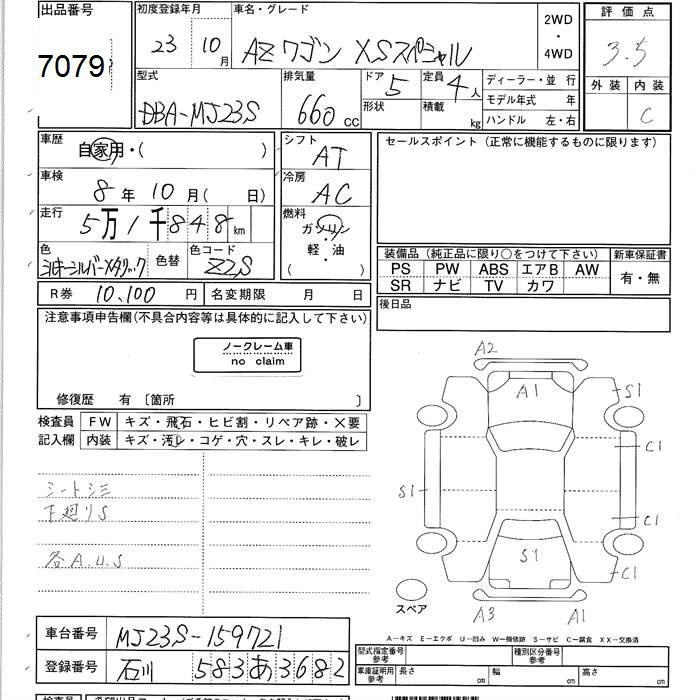 出品番号 初度登録年月 車名・グレード 2WD・4WD 評価点
7079 23 10月 AZワゴン XSスペシャル 3.5
型式 排気量 ドア 5 定員 4人 ディーラー・並行 外装 内装
DBA-MJ23S 660cc 形状 積載 kg モデル年式 年 C
ハンドル 左・右
車歴 自家用・( ) シフト AT セールスポイント (正常に機能するものに限ります)
車検 8年10月( 日) 冷房 AC
走行 5万1千848km 燃料 ガソリン
軽・油
( )
色 色替 色コード Z2S 装備品 (純正品に限り○をつけて下さい) 新車保証書
シルキーシルバーメタリック PS PW ABS エアB AW 有・無
SR ナビ TV カワ
R券 10,100円 名変期限 月 日 後日品
注意事項申告欄(不具合内容等は具体的に記入して下さい)
ノークレーム車
no claim
修復歴 有 〔箇所 〕
検査員 FW キズ・飛石・ヒビ割・リペア跡・×要
記入欄 内装 キズ・汚レ・コゲ・穴・スレ・キレ・破レ
シートシミ
下廻りS
各A.U.S
A2
A1 S1
C1
S1 C1
S1 C1
スペア A3 A1
A-キズ E-エクボ U-凹み W-補修跡 S-サビ C-腐食 XX-交換済
車台番号 MJ23S-159721 型式指定番号 参考 種別区分番号 参考
登録番号 石川 583 あ 3682 車庫証明用 参考 長さ cm 幅 cm 高さ cm